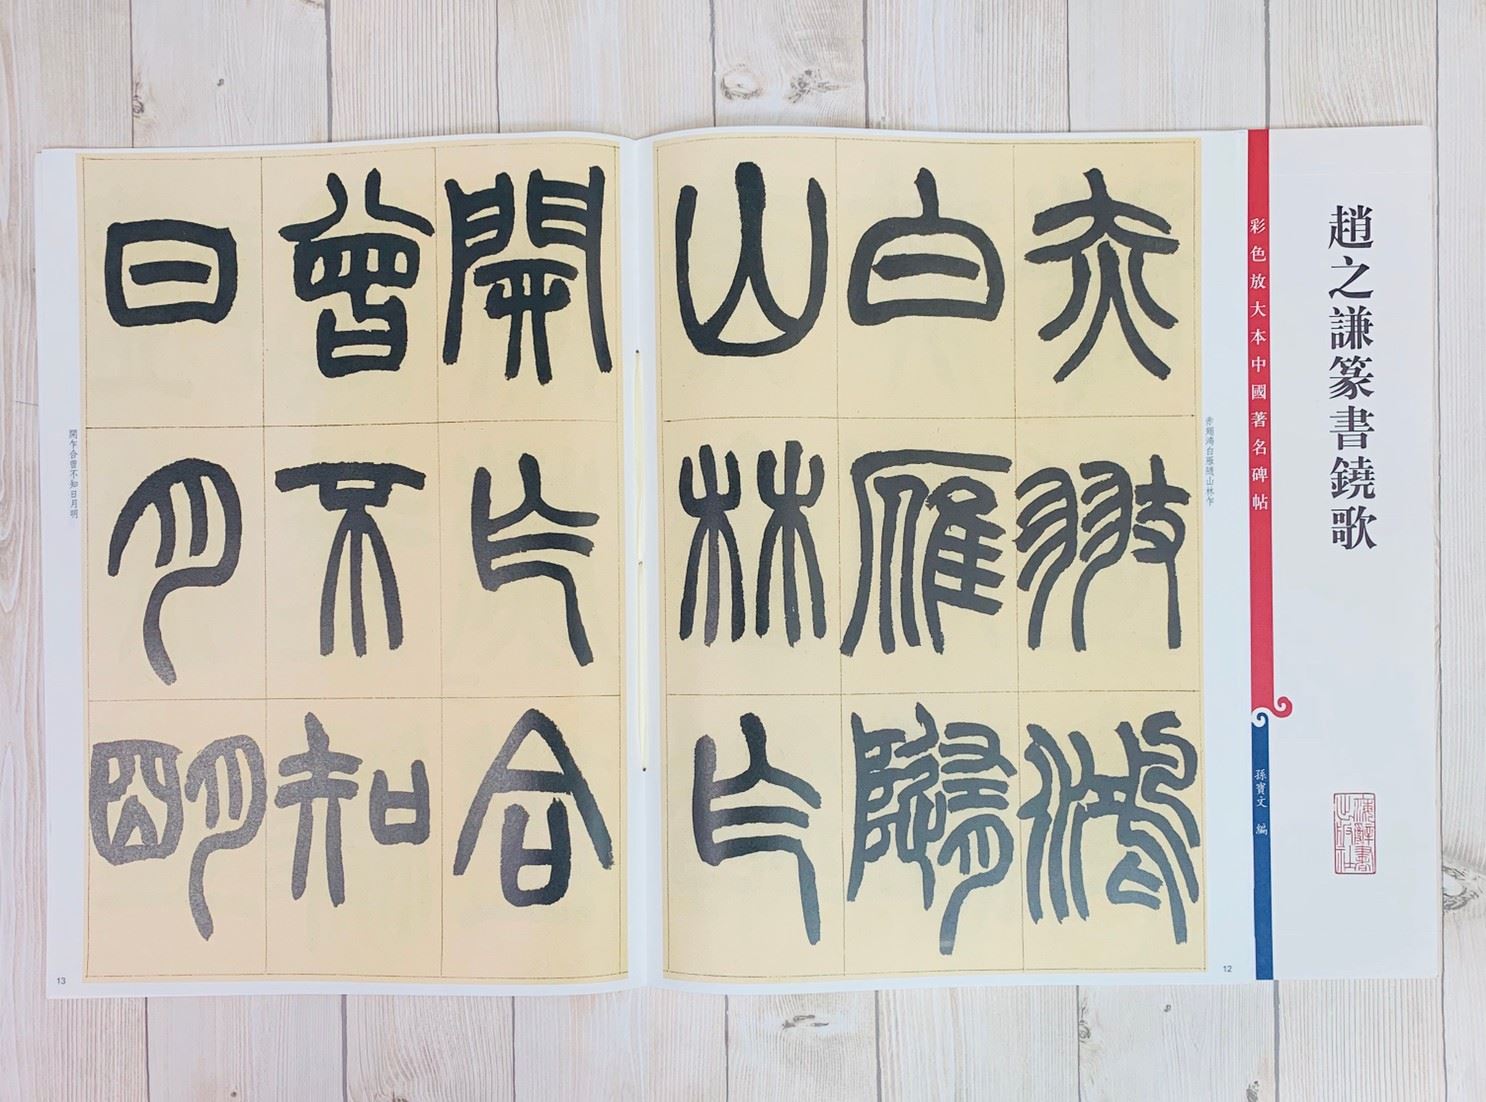 趙之謙篆書鐃歌
彩色放大本中國著名碑帖
孫寶文 編
赤翅鴻白雁隨山林乍
赤翅鴻
白雁隨
山林乍
12
開乍合
曾不知
日月明
開乍合曾不知日月明
13